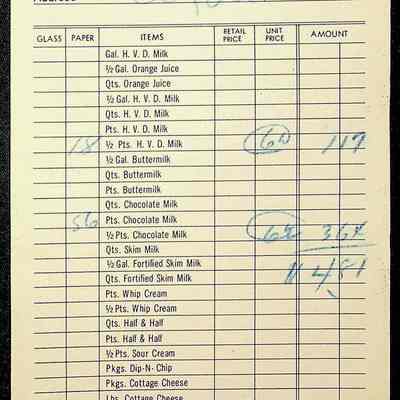 GLASS PAPER ITEMS RETAIL PRICE UNIT PRICE AMOUNT
Gal. H. V. D. Milk
½ Gal. Orange Juice
Qts. Orange Juice
½ Gal. H. V. D. Milk
Qts. H. V. D. Milk
Pts. H. V. D. Milk
18 ½ Pts. H. V. D. Milk 117
½ Gal. Buttermilk
Qts. Buttermilk
Pts. Buttermilk
Qts. Chocolate Milk
56 Pts. Chocolate Milk
½ Pts. Chocolate Milk 364
Qts. Skim Milk
½ Gal. Fortified Skim Milk 481
Qts. Fortified Skim Milk
Pts. Whip Cream
½ Pts. Whip Cream
Qts. Half & Half
Pts. Half & Half
½ Pts. Sour Cream
Pkgs. Dip-N-Chip
Pkgs. Cottage Cheese
Lbs. Cottage Cheese